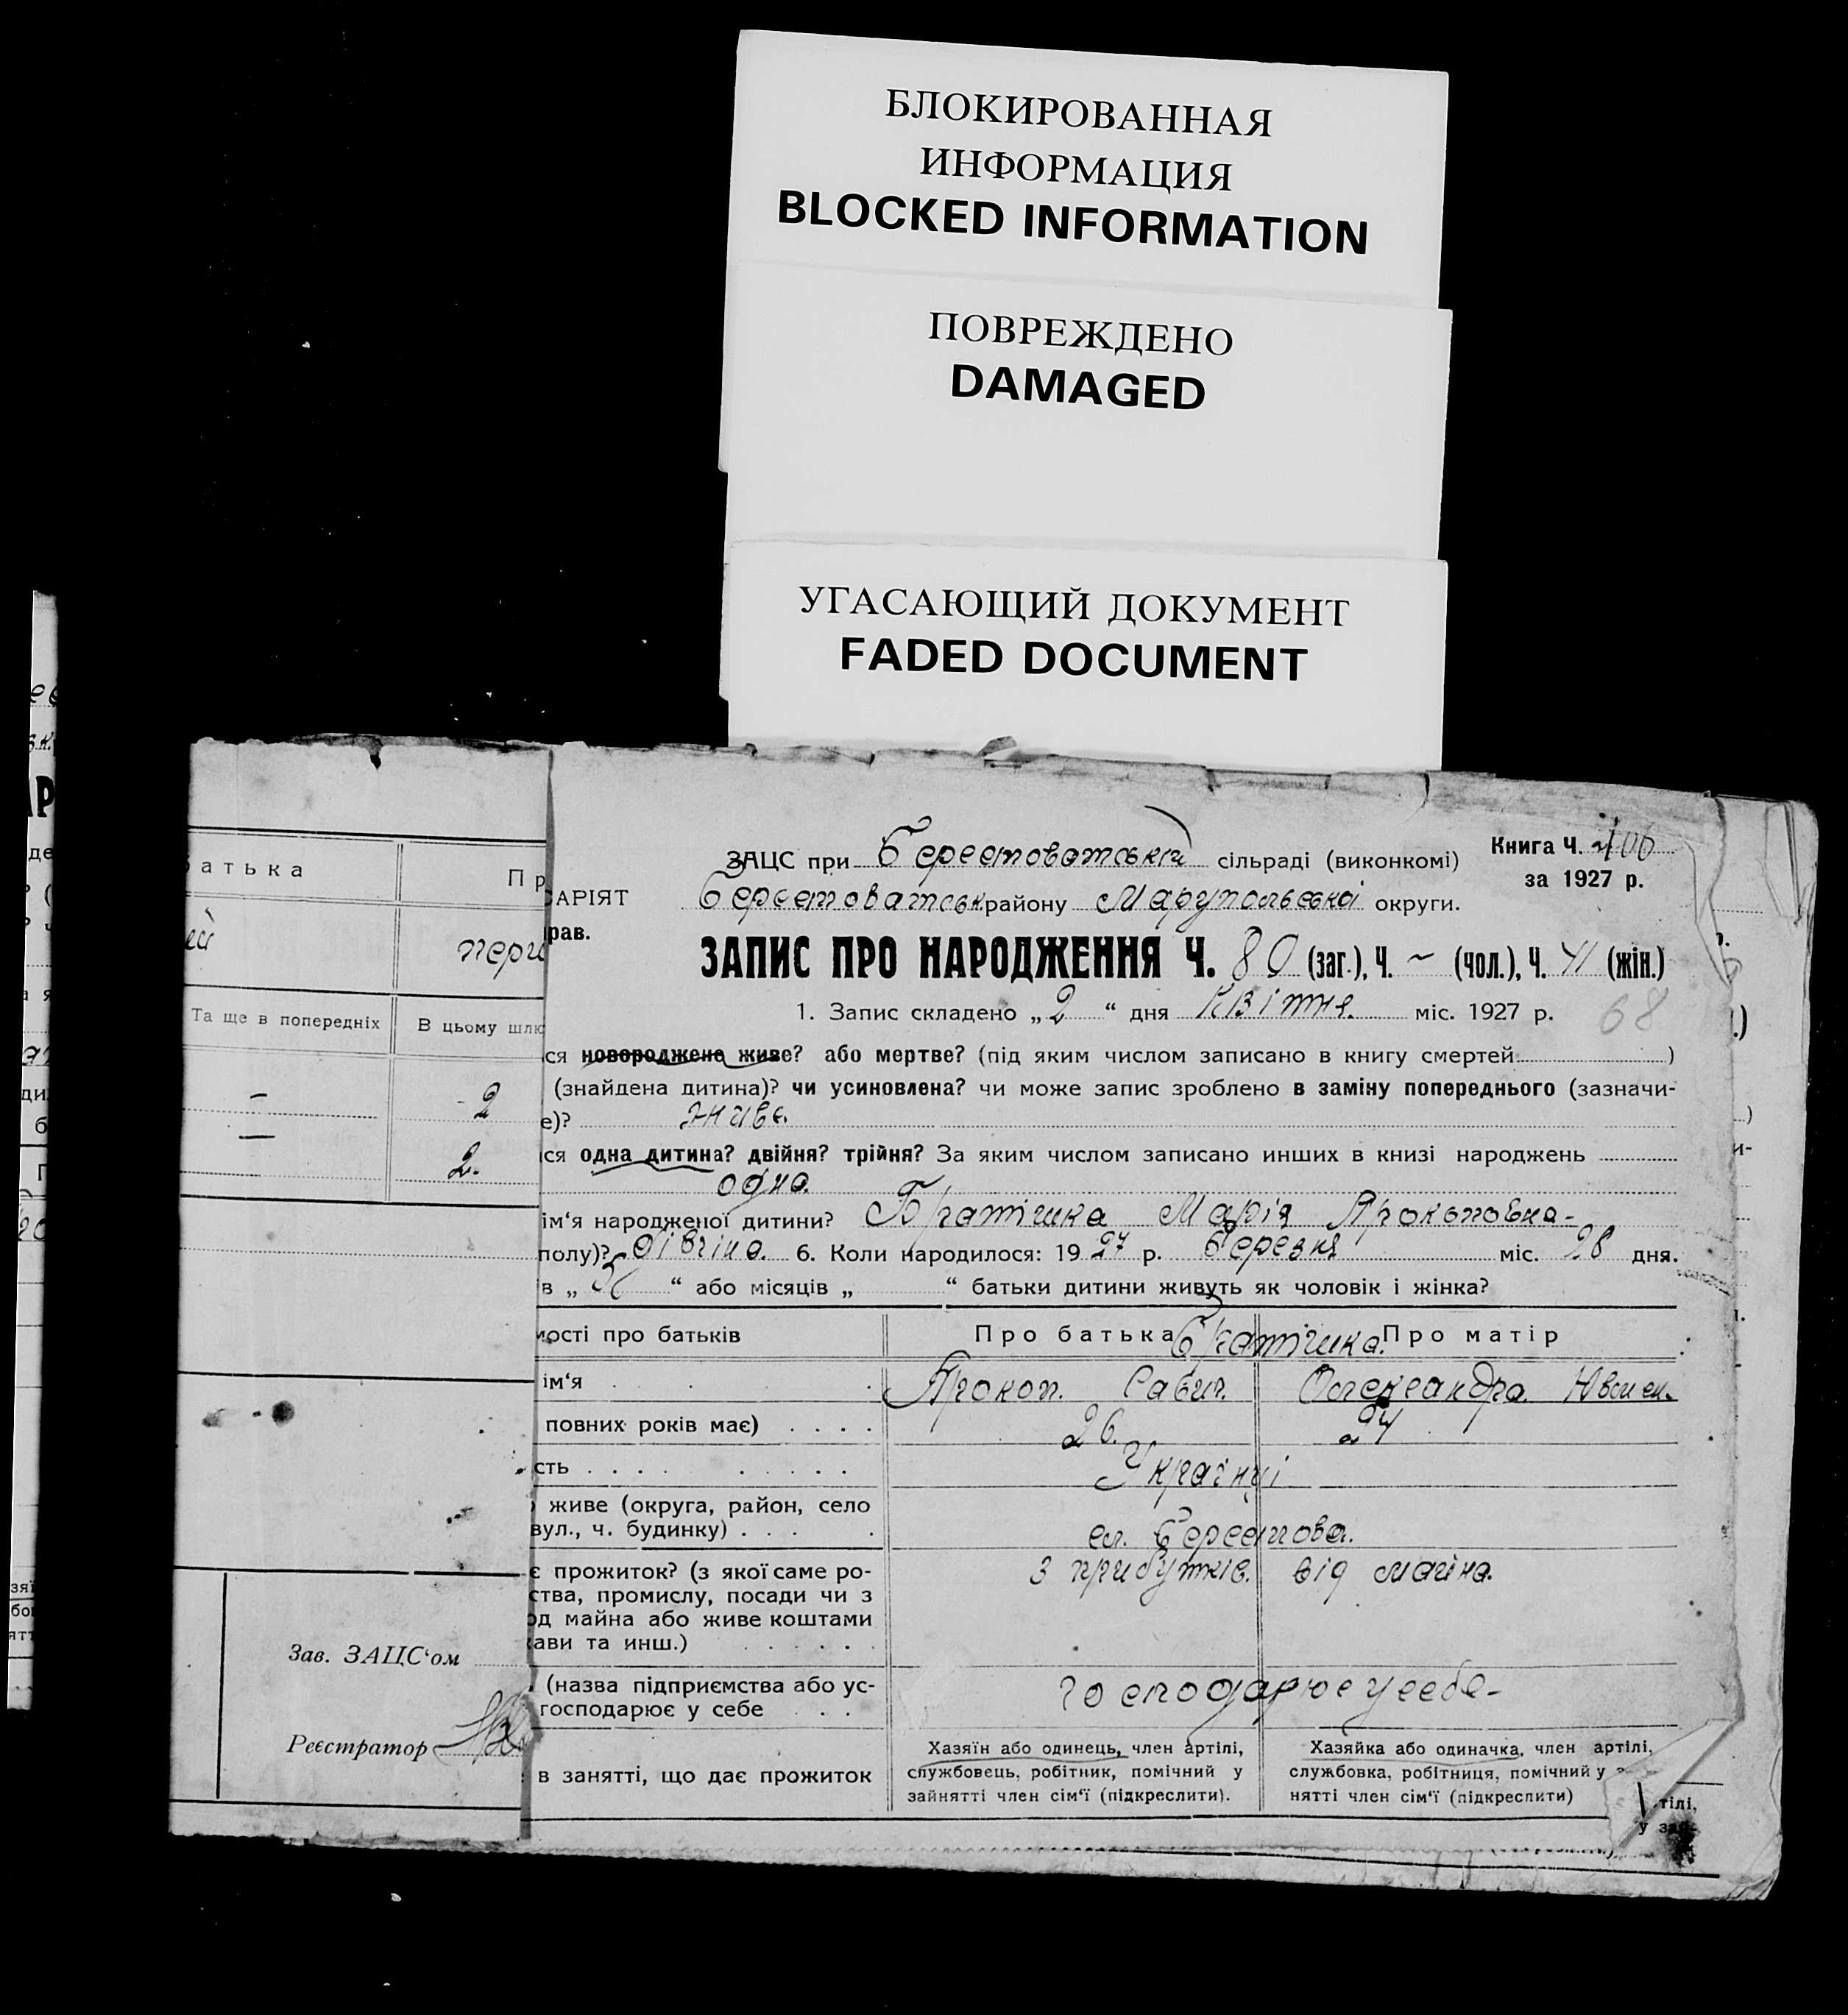 БЛОКИРОВАННАЯ
ИНФОРМАЦИЯ
BLOCKED INFORMATION
ПОВРЕЖДЕНО
DAMAGED
УГАСАЮЩИЙ ДОКУМЕНТ
FADED DOCUMENT
батька
Пр
ей
перш
Та ще в попередніх
В цьому шлю
–
2
–
2.
Зав. ЗАЦС‘ом
Реєстратор
ЗАЦС при Берестоватській сільраді (виконкомі)
Книга Ч. 106
за 1927 р.
АРІЯТ Берестоватськ району Маріупольської округи.
рав.
ЗАПИС ПРО НАРОДЖЕННЯ Ч. 80 (заг.), Ч. ~ (чол.), Ч. 41 (жін.)
1. Запис складено „2“ дня Квітня. міс. 1927 р.
68
ся новороджене живе? або мертве? (під яким числом записано в книгу смертей )
(знайдена дитина)? чи усиновлена? чи може запис зроблено в заміну попереднього (зазначи-
е)? живе.
ся одна дитина? двійня? трійня? За яким числом записано инших в книзі народжень
одна.
ім‘я народженої дитини? Братішка Марія Прокоповна-
полу)? дівчина. 6. Коли народилося: 1927 р. березня міс. 28 дня.
в „ “ або місяців „ “ батьки дитини живуть як чоловік і жінка?
мості про батьків
Про батька
Братішка.
Про матір
ім‘я
Прокоп. Савич.
Олександра.
повних років має)
26.
24
сть
Українці
живе (округа, район, село
вул., ч. будинку)
сл. Берестова.
є прожиток? (з якої саме ро-
ства, промислу, посади чи з
од майна або живе коштами
ави та инш.)
з прибутків. від майна.
(назва підприємства або ус-
господарює у себе
господарює у себе-
в занятті, що дає прожиток
Хазяїн або одинець, член артілі,
службовець, робітник, помічний у
зайнятті член сім‘ї (підкреслити).
Хазяйка або одиначка, член артілі,
службовка, робітниця, помічний у
нятті член сім‘ї (підкреслити)
тілі,
у зай-